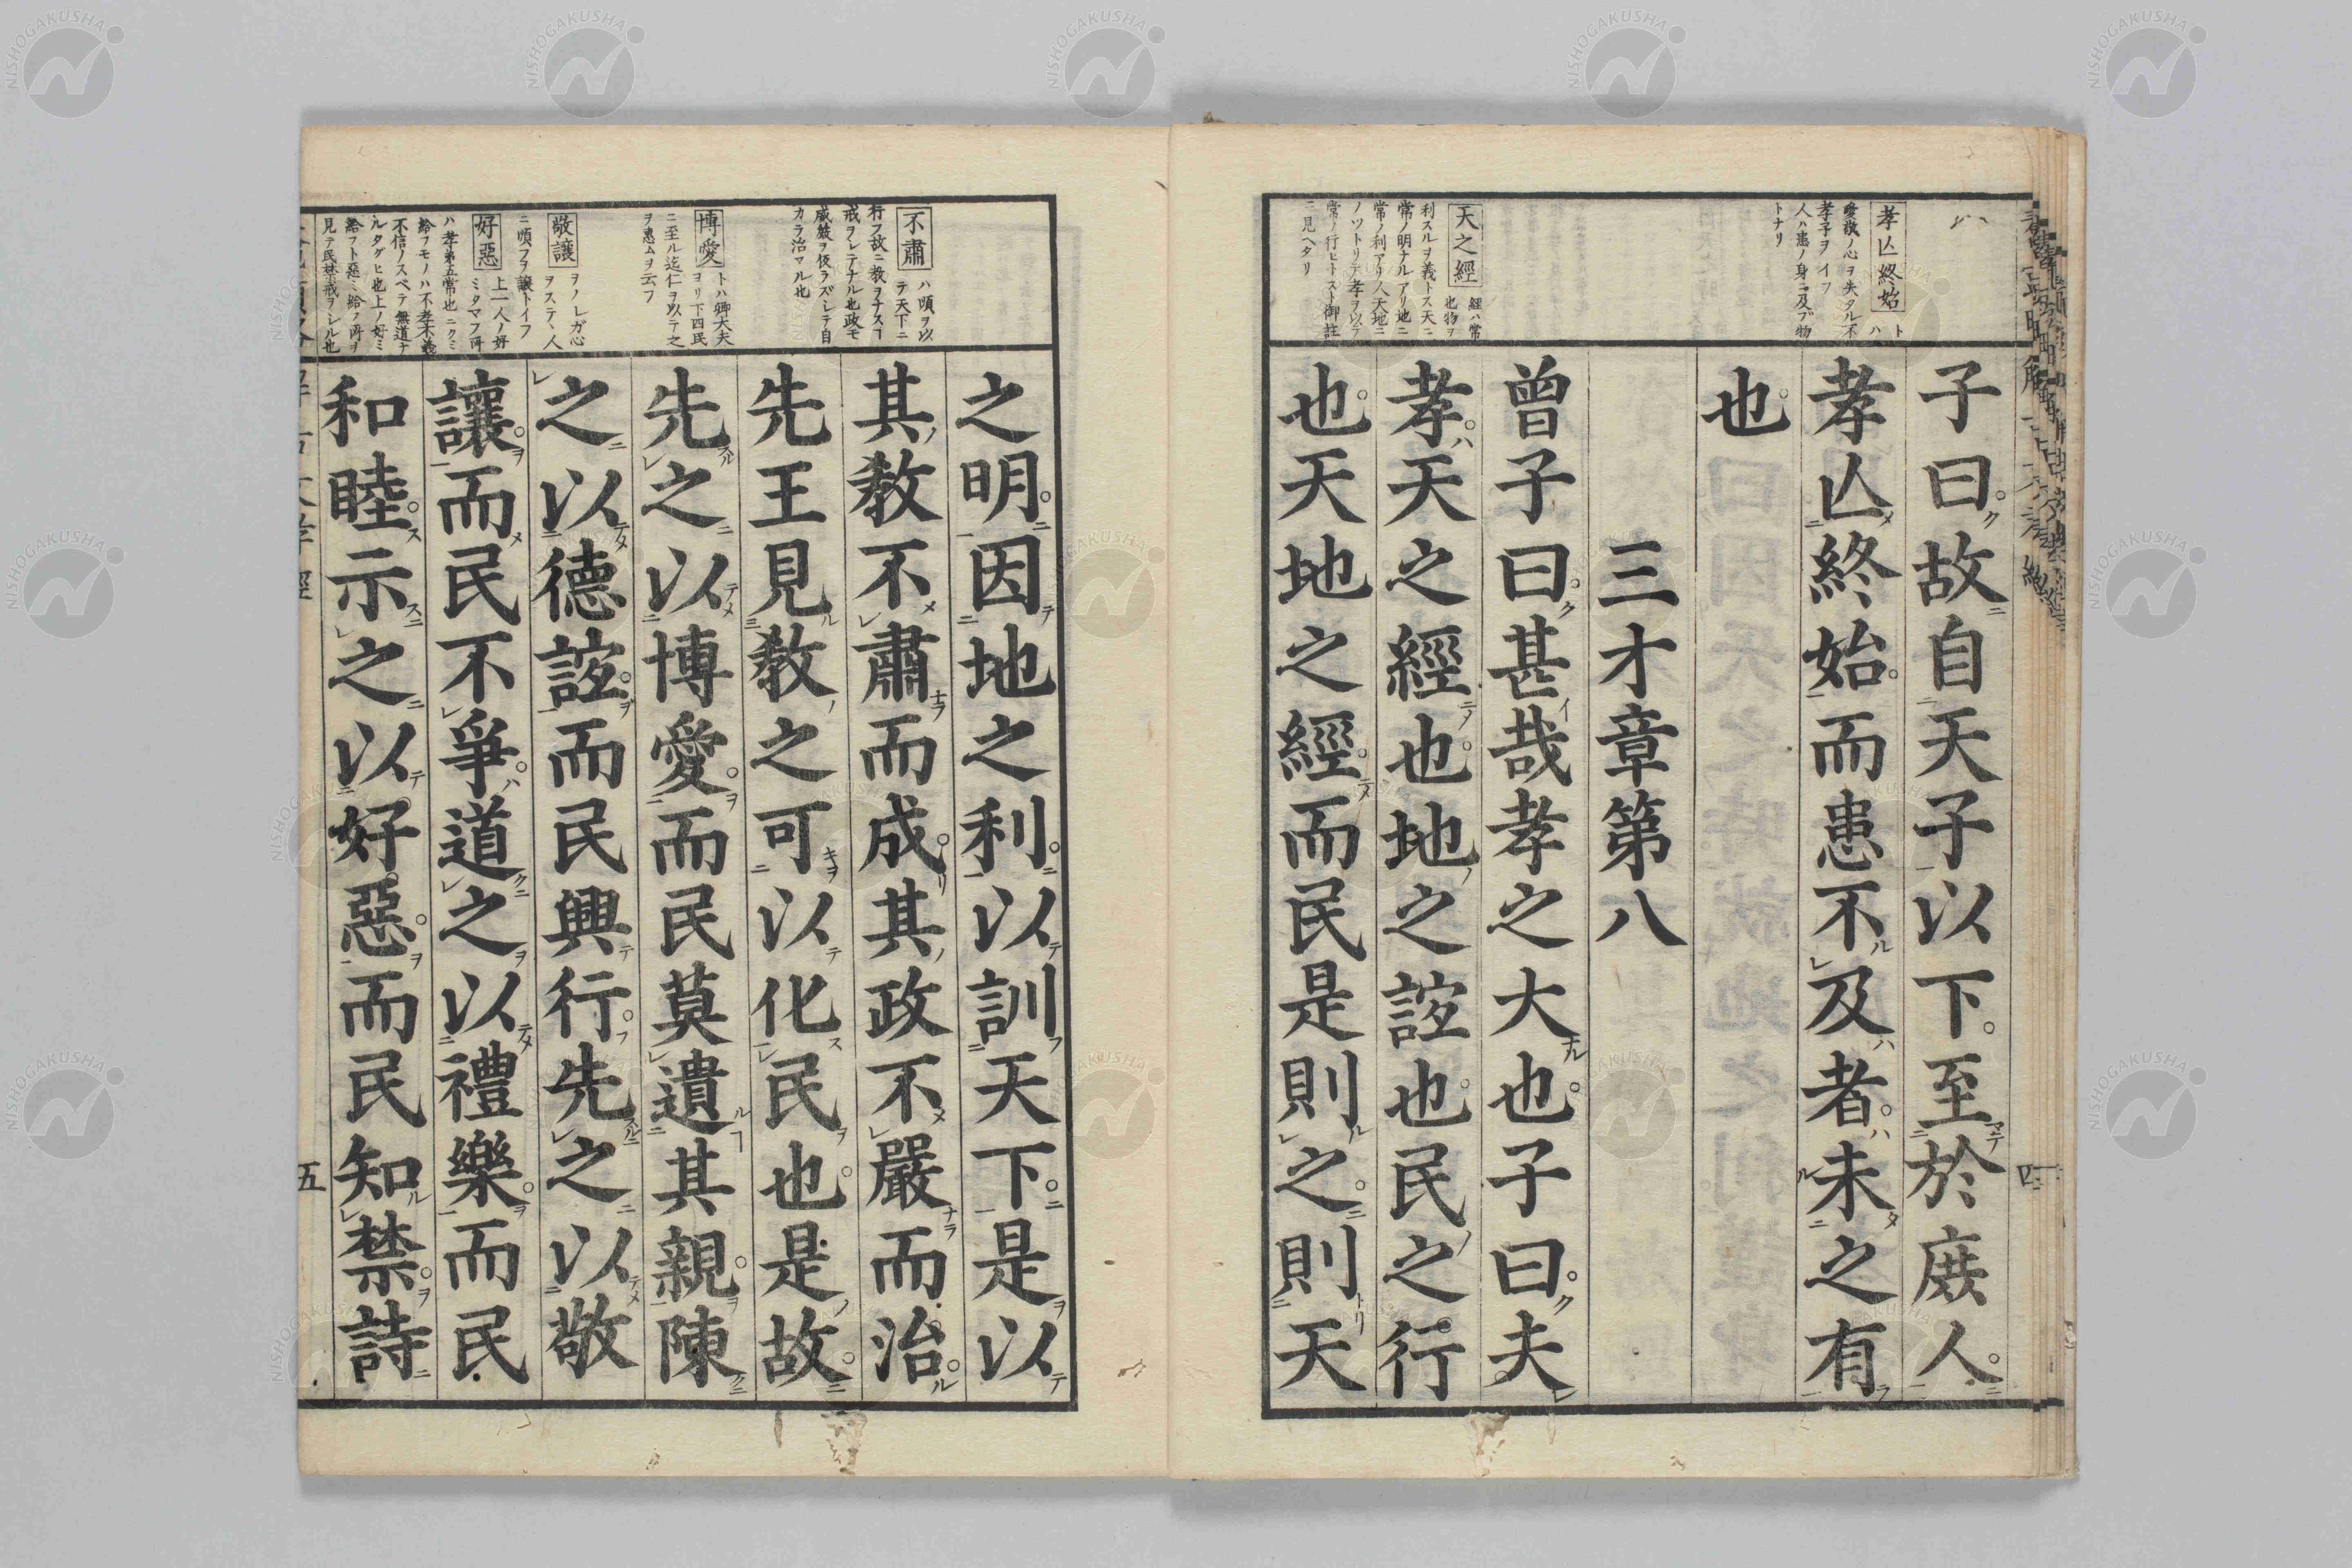 孝亾終始 トハ
愛敬ノ心ヲ失タル不
孝子ヲイフ
人ハ患ノ身ニ及ブ物
トナリ
天之經 經ハ常
也物ヲ
利スルヲ義トス天ニ
常ノ明ナルアリ地ニ
常ノ利アリ人天地ニ
ノツトリテ孝ヲ以テ
常ノ行ヒトスト御註
ニ見ヘタリ
子曰故自天子以下至於庻人
孝亾終始而患不及者未之有
也
三才章第八
曾子曰甚哉孝之大也子曰夫
孝天之經也地之誼也民之行
也天地之經而民是則之則天
四
不肅 ハ順ヲ以
テ天下ニ
行フ故ニ教ヲナスヿ
戒ヲレテナル也政モ
威嚴ヲ仮ラズシテ自
カラ治マル也
博愛 トハ卿大夫
ヨリ下四民
ニ至ル迄仁ヲ以テ之
ヲ惠ムヲ云フ
敬讓 ヲノレガ心
ヲステヽ人
ニ順フヲ讓トイフ
好惡 上一人ノ好
ミタマフ所
ハ孝弟五常也ニクミ
給フモノハ不孝不義
不信ノスベテ無道ナ
ルタグヒ也上ノ好ミ
給フト惡ミ給フ所ヲ
見テ民禁戒ヲシル也
之明因地之利以訓天下是以
其教不肅而成其政不嚴而治
先王見教之可以化民也是故
先之以博愛而民莫遺其親陳
之以德誼而民興行先之以敬
讓而民不爭道之以禮樂而民
和睦示之以好惡而民知禁詩
五
NISHOGAKUSHA